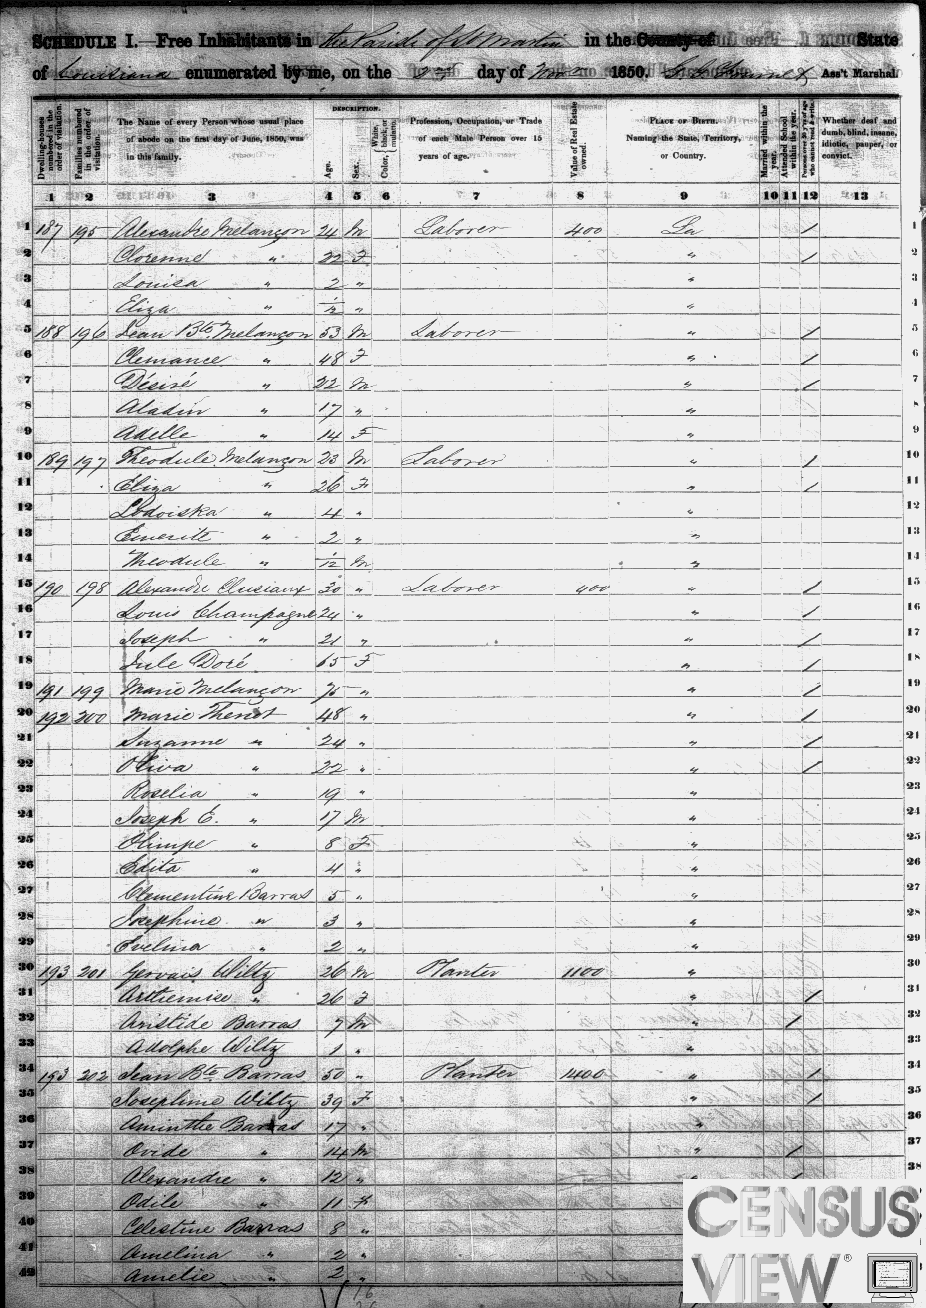 SCHEDULE I. Free Inhabitants in the Parish of St Martin in the County of State
of Louisiana enumerated by me, on the day of 1850. Ass't Marshal.
Dwelling-houses numbered in the order of visitation.
Families numbered in the order of visitation.
The Name of every Person whose usual place of abode on the first day of June, 1850, was in this family.
DESCRIPTION.
Age.
Sex.
Color, White, black, or mulatto.
Profession, Occupation, or Trade of each Male Person over 15 years of age.
Value of Real Estate owned.
PLACE OF BIRTH. Naming the State, Territory, or Country.
Married within the year.
Attended School within the year.
Persons over 20 y'rs of age who cannot read & write.
Whether deaf and dumb, blind, insane, idiotic, pauper, or convict.
1 2 3 4 5 6 7 8 9 10 11 12 13
1 187 195 Alexandre Melançon 24 M Laborer 400 La / 1
2 Clorenne " 22 F " / 2
3 Louisa " 2 " " 3
4 Eliza " 1/12 " " 4
5 188 196 Jean Bte Melançon 53 M Laborer " / 5
6 Clemance " 48 F " / 6
7 Désiré " 22 M " / 7
8 Aladin " 17 " " 8
9 Adelle " 14 F " 9
10 189 197 Theodule Melançon 23 M Laborer " / 10
11 Eliza " 26 F " / 11
12 Lodoiska " 4 " " 12
13 Emerite " 2 " " 13
14 Theodule " 1/12 M " 14
15 190 198 Alexandre Clusiaux 30 " Laborer 400 " / 15
16 Louis Champagne 24 " " / 16
17 Joseph " 21 " " / 17
18 Jule Doré 65 F " / 18
19 191 199 Marie Melançon 75 " " / 19
20 192 200 Marie Theriot 48 " " / 20
21 Suzanne " 24 " " / 21
22 Oliva " 22 " " / 22
23 Roselia " 19 " " 23
24 Joseph E. " 17 M " 24
25 Olimpe " 8 F " 25
26 Edita " 4 " " 26
27 Clementine Barras 5 " " 27
28 Josephine " 3 " " 28
29 Evelina " 2 " " 29
30 193 201 Gervais Wiltz 26 M Planter 1100 " 30
31 Arthemise " 26 F " / 31
32 Aristide Barras 7 M " / 32
33 Adolphe Wiltz 1 " " 33
34 193 202 Jean Bte Barras 50 " Planter 1400 " / 34
35 Josephine Wiltz 39 F " / 35
36 Aminthe Barras 17 " " 36
37 Ovide " 14 M " / 37
38 Alexandre " 12 " " / 38
39 Odile " 11 F
40 Celestine Barras 8 "
41 Amelina " 2 "
42 Amelie " 2 "
16
CENSUS
VIEW®